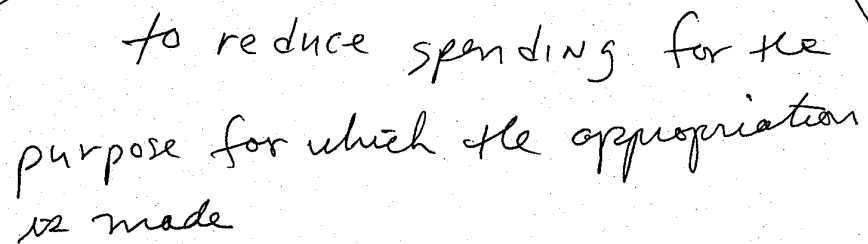 to reduce spending for the
purpose for which the appropriation
is made